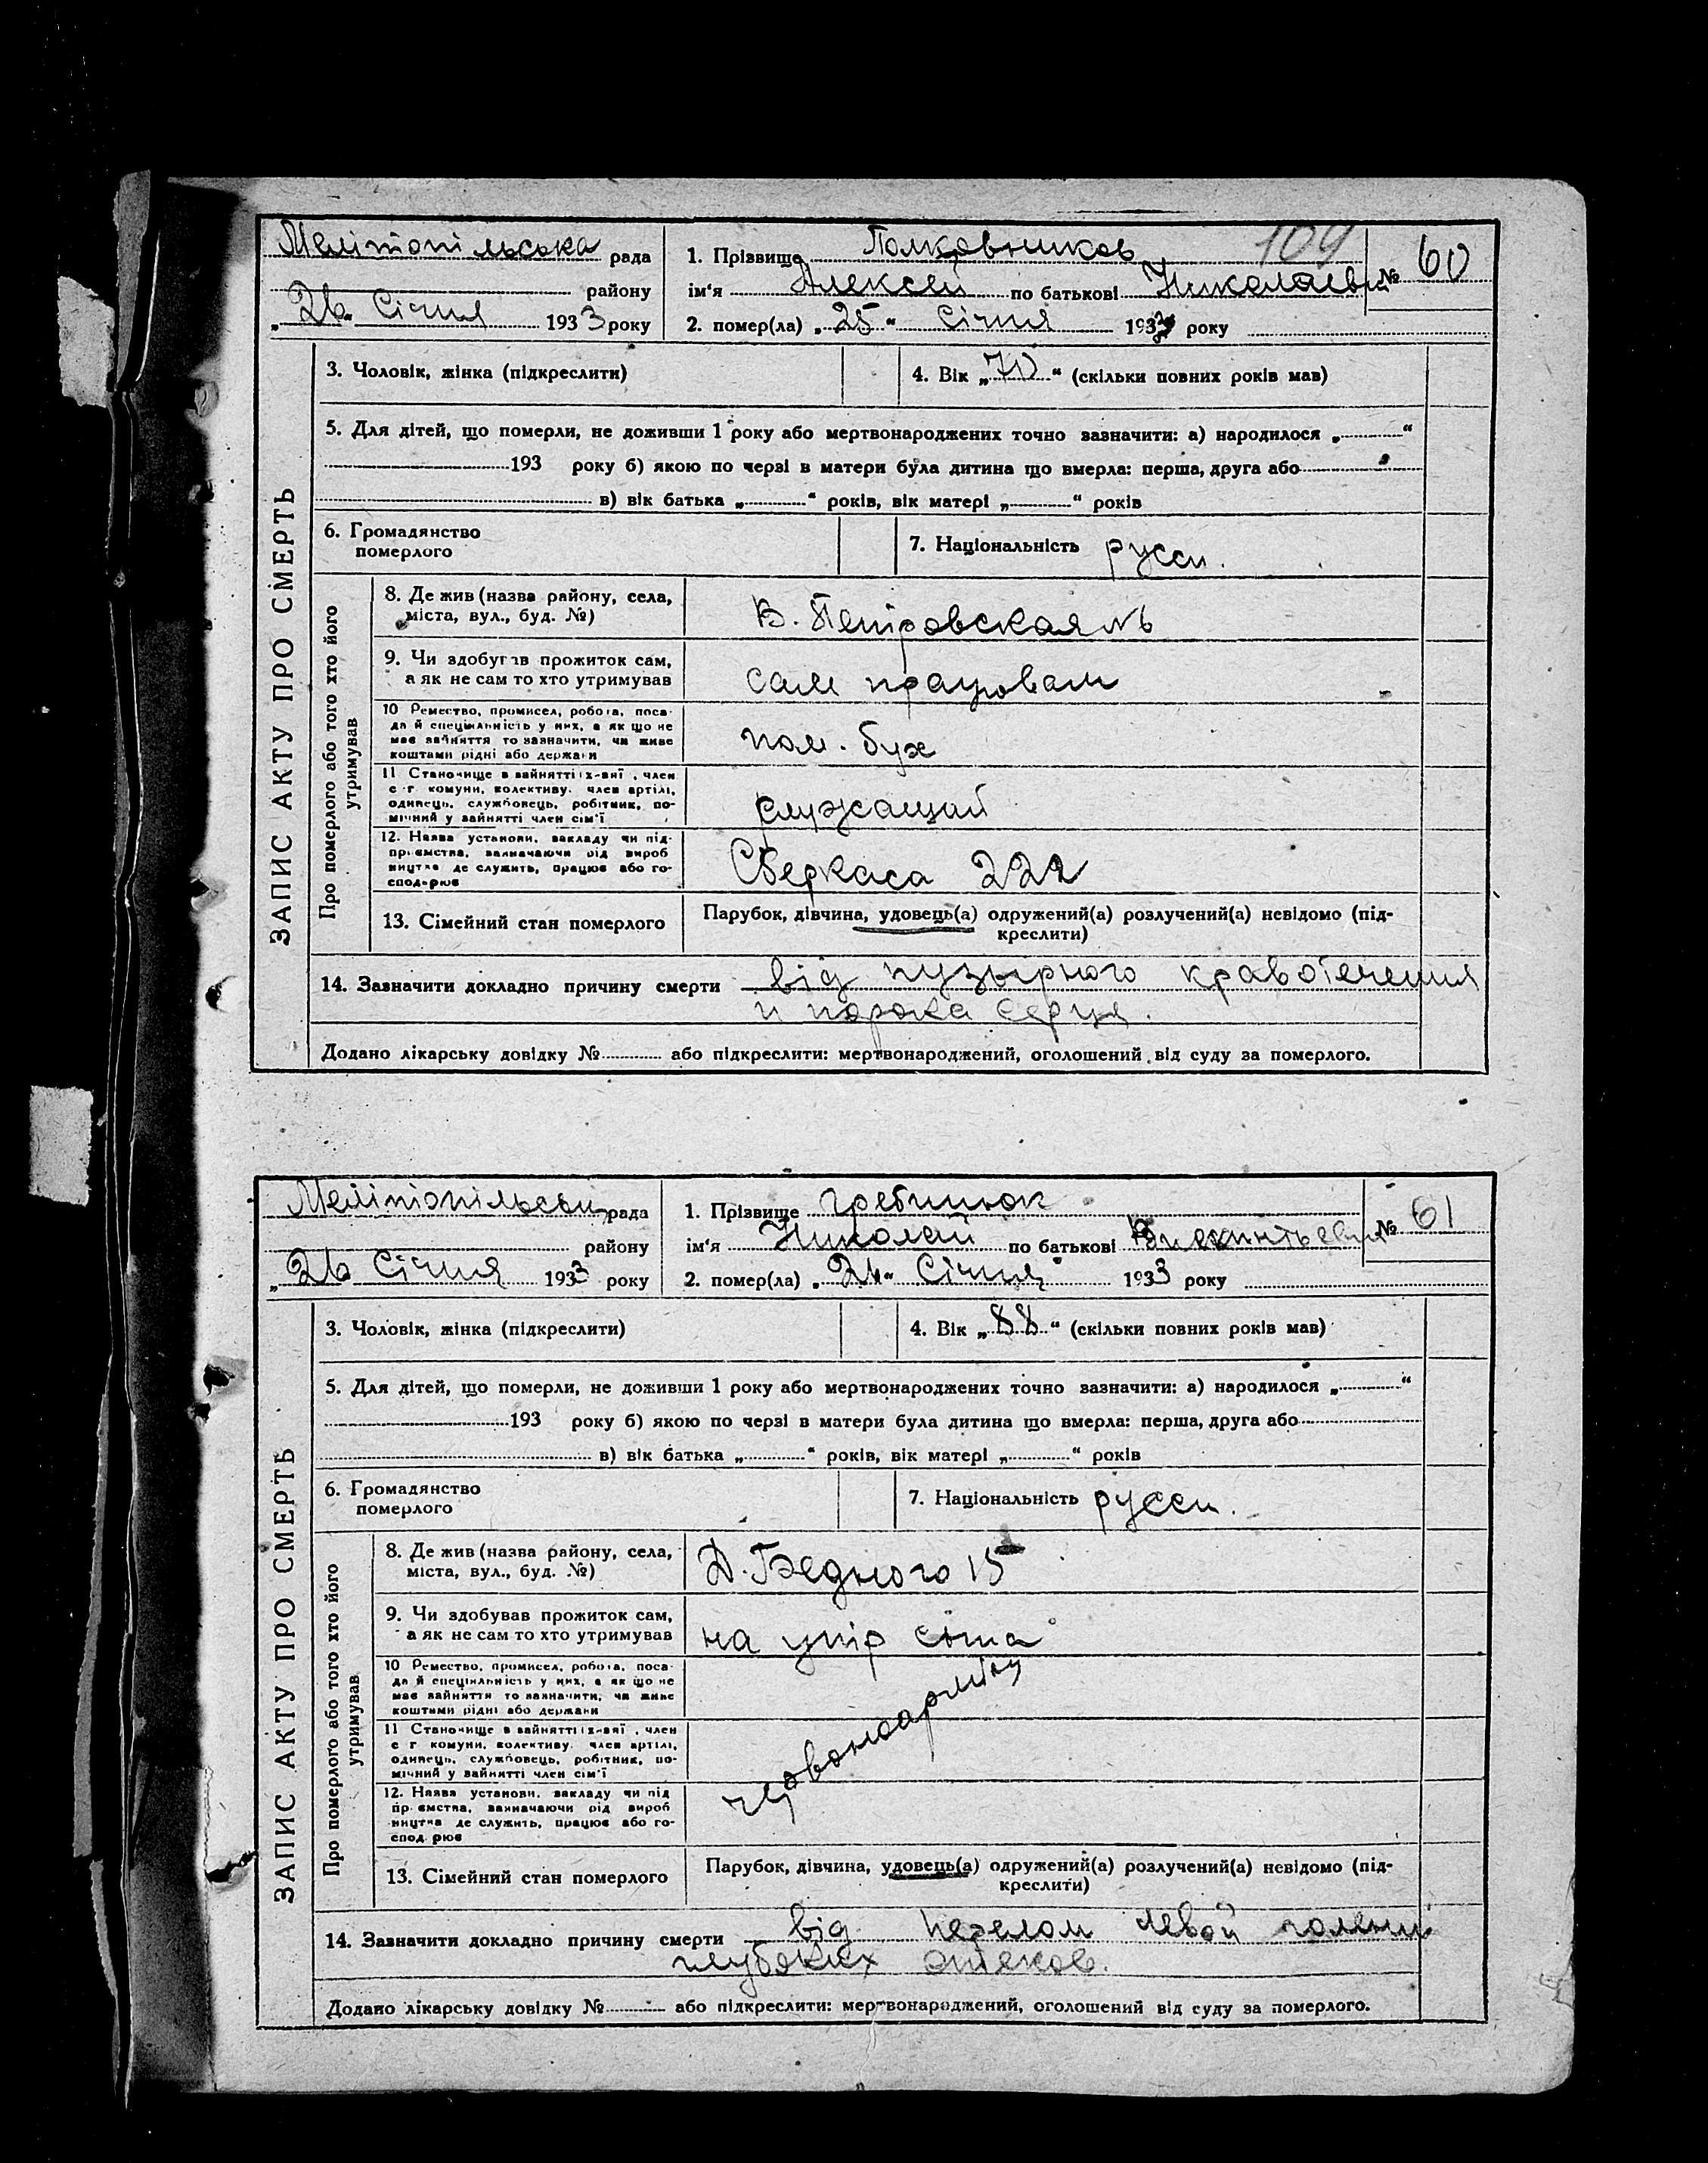 109
Мелітопільська рада
району
„26“ Січня 1933 року
1. Прізвище Полковников
ім‘я Алексей по батькові Николаевич
№ 60
2. помер(ла) „25“ Січня 1933 року
ЗАПИС АКТУ ПРО СМЕРТЬ
3. Чоловік, жінка (підкреслити)
4. Вік „70“ (скільки повних років мав)
5. Для дітей, що померли, не доживши 1 року або мертвонароджених точно зазначити: а) народилося „ “
193 року б) якою по черзі в матери була дитина що вмерла: перша, друга або
в) вік батька „ “ років, вік матері „ “ років
6. Громадянство
померлого
7. Національність русск.
Про померлого або того хто його
утримував
8. Де жив (назва району, села,
міста, вул., буд. №)
В. Петровская №
9. Чи здобував прожиток сам,
а як не сам то хто утримував
сам працовал
10 Ремество, промисел, робота, поса-
да й спеціяльність у них, а як що не
має зайняття то зазначити, чи живе
коштами рідні або держави
пом. бух
11 Становище в зайнятті: х-вні, член
с-г комуни, колективу, член артілі,
одинець, службовець, робітник, по-
мічний у зайнятті член сім‘ї
служащий
12. Назва установи, закладу чи під-
приємства, зазначаючи рід вироб
ництва де служить, працює або го-
сподарює
Сберкаса 222
13. Сімейний стан померлого
Парубок, дівчина, удовець(а) одружений(а) розлучений(а) невідомо (під-
креслити)
14. Зазначити докладно причину смерти від пузырного кравотечения
и порока серця.
Додано лікарську довідку № або підкреслити: мертвонароджений, оголошений від суду за померлого.
Мелітопільськ рада
району
„26 Січня 1933 року
1. Прізвище Гребинюк
ім‘я Николай по батькові
№ 61
2. помер(ла) „24“ Січня 1933 року
ЗАПИС АКТУ ПРО СМЕРТЬ
3. Чоловік, жінка (підкреслити)
4. Вік „88“ (скільки повних років мав)
5. Для дітей, що померли, не доживши 1 року або мертвонароджених точно зазначити: а) народилося „ “
193 року б) якою по черзі в матери була дитина що вмерла: перша, друга або
в) вік батька „ “ років, вік матері „ “ років
6. Громадянство
померлого
7. Національність русск.
Про померлого або того хто його
утримував
8. Де жив (назва району, села,
міста, вул., буд. №)
Д. Бедного 15
9. Чи здобував прожиток сам,
а як не сам то хто утримував
на утр сина
10 Ремество, промисел, робота, поса-
да й спеціяльність у них, а як що не
має зайняття то зазначити, чи живе
коштами рідні або держави
11 Становище в зайнятті: х-вні, член
с г комуни, колективу, член артілі,
одинець, службовець, робітник, по-
мічний у зайнятті член сім‘ї
12. Назва установи, закладу чи під
приємства, зазначаючи рід вироб
ництва де служить, працює або го-
сподарює
13. Сімейний стан померлого
Парубок, дівчина, удовець(а) одружений(а) розлучений(а) невідомо (під-
креслити)
14. Зазначити докладно причину смерти від перелом левой голени
глубоких отеков.
Додано лікарську довідку № або підкреслити: мертвонароджений, оголошений від суду за померлого.